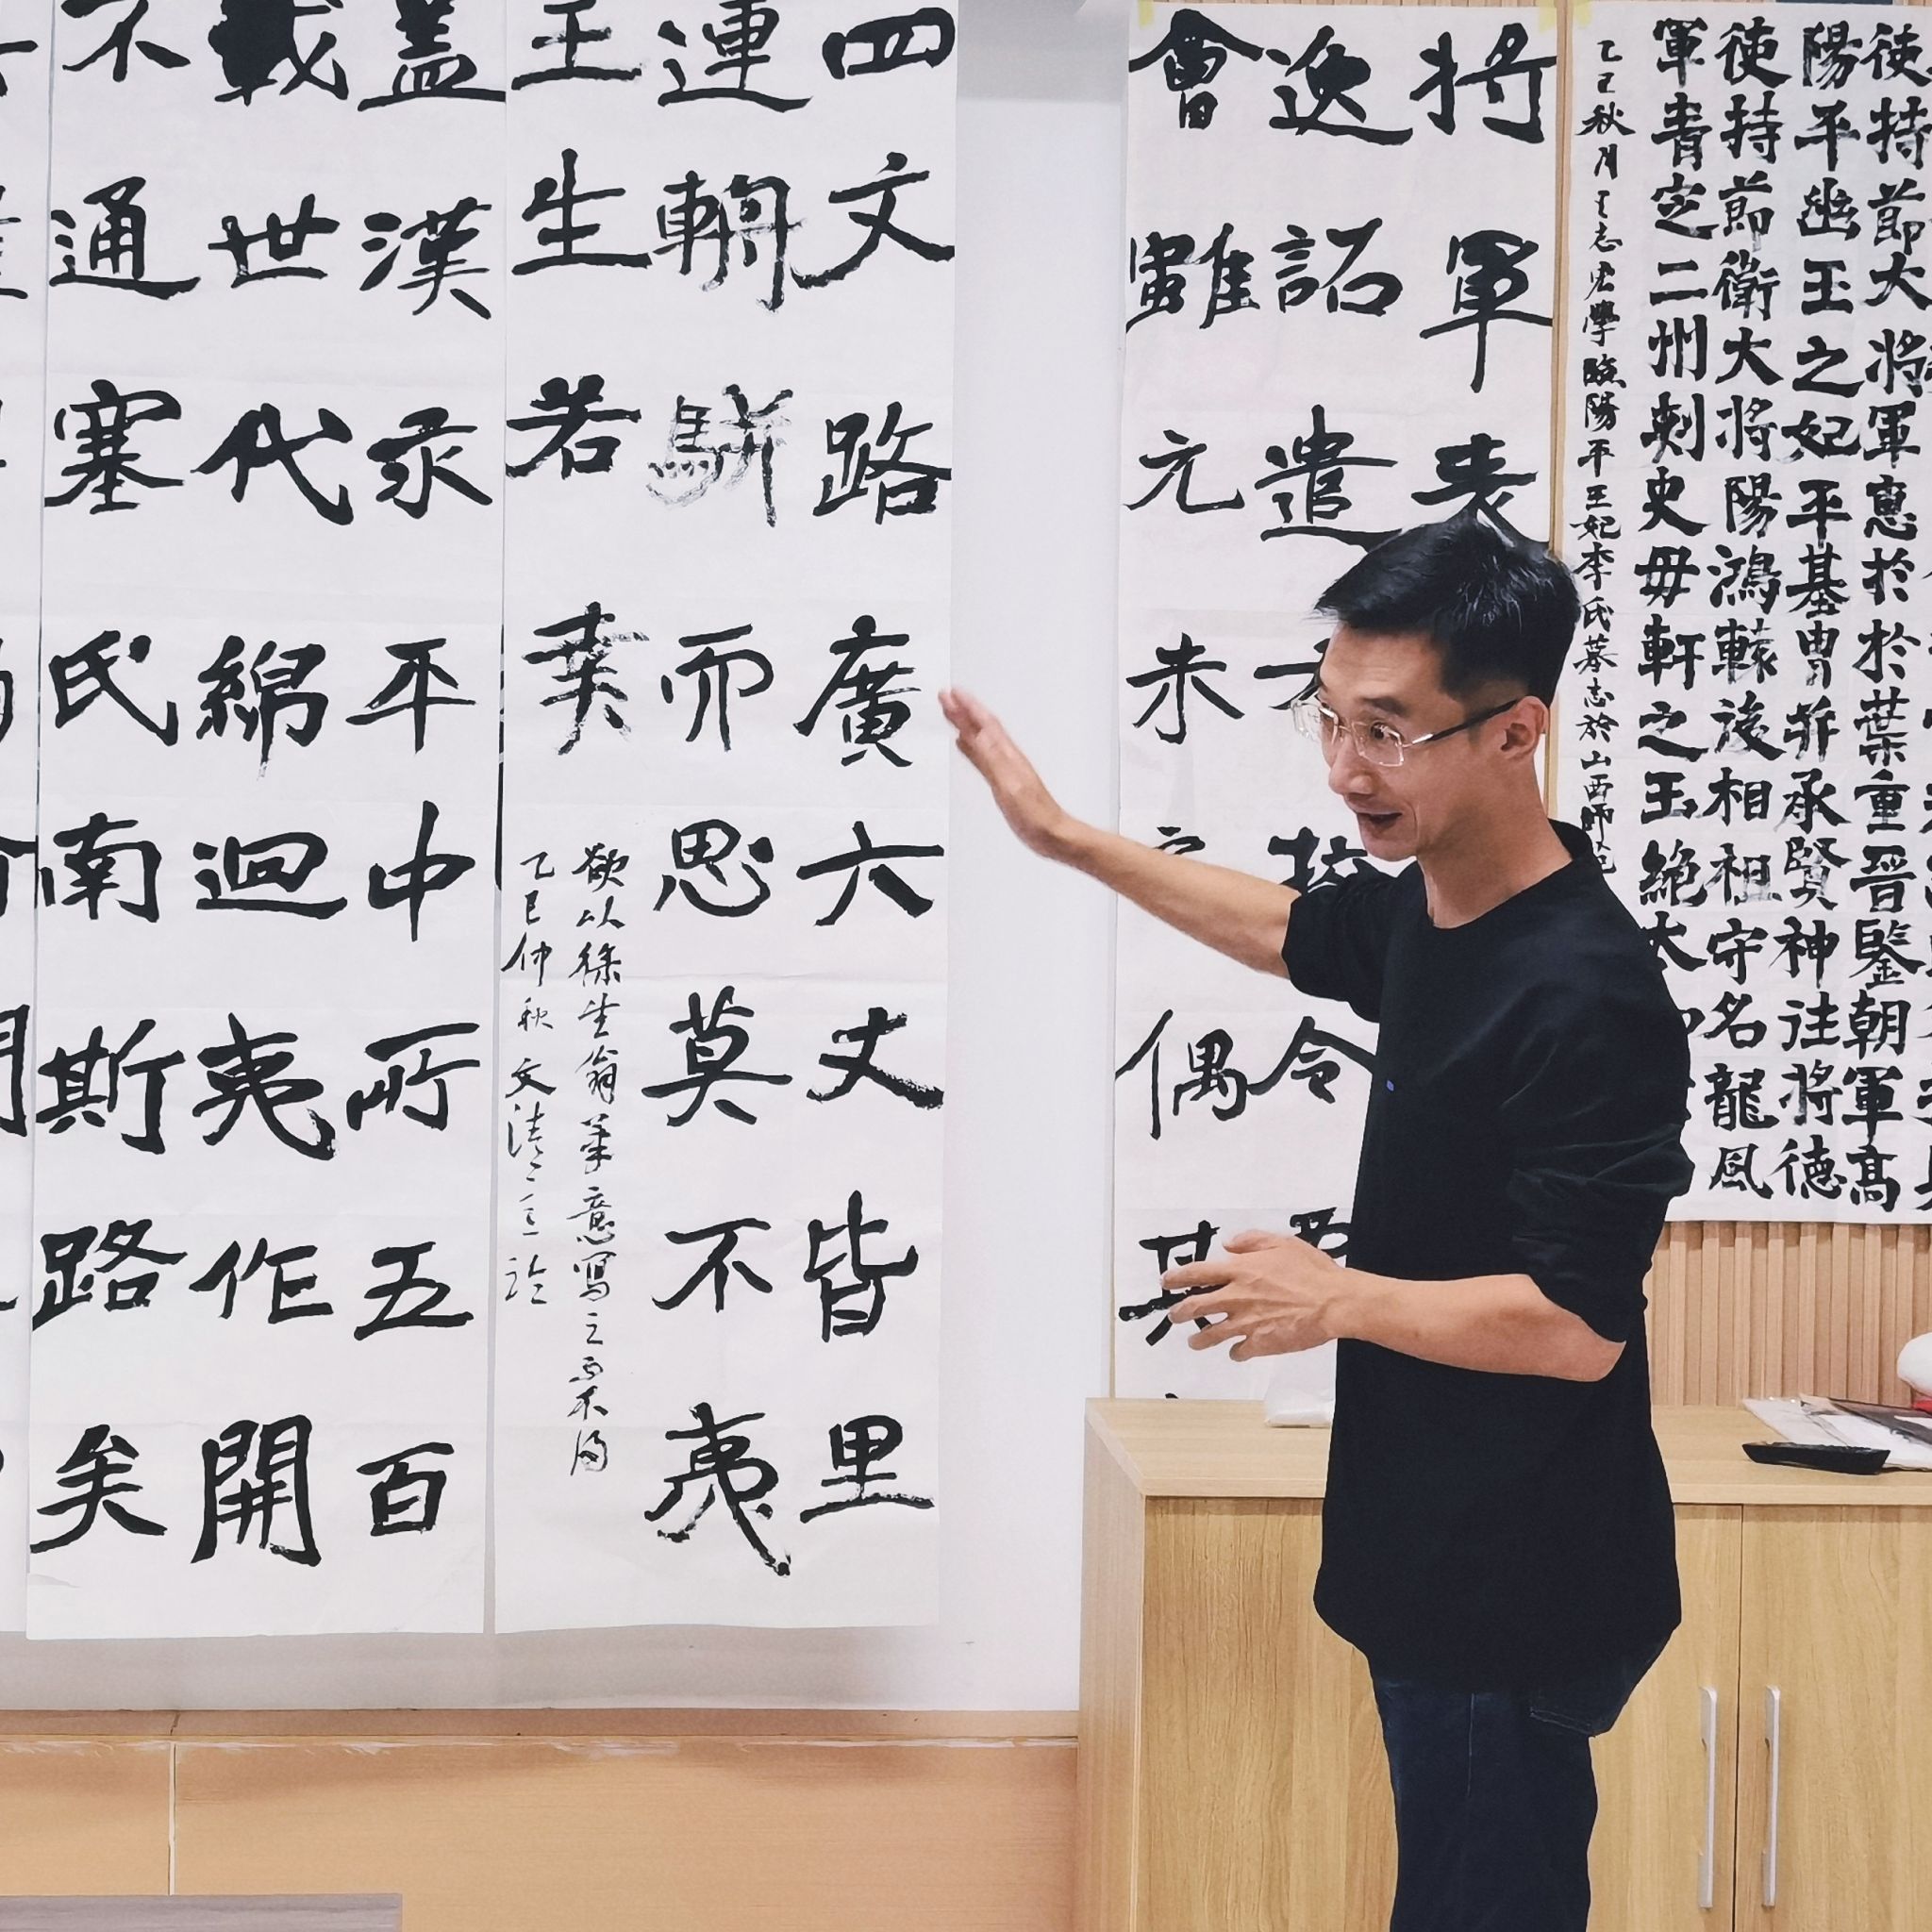 使持節大將軍惠於於葉重晉鑒朝軍高
陽平幽王之妃平基曹并承賢神注將德
使持節衛大將陽鴻轅後相祖守名龍風
軍青定二州刺史毋軒之玉絶太
乙巳秋月王志宏學臨陽平王妃李氏墓志於山西師範
將軍表
逸詔遣控令
會雖亢未偶其
四文路廣六丈皆里
連輞駢而思莫不夷
王生若
欲以徐生翁筆意寫之而不得
乙巳仲秋文清
蓋漢永平中所五百
載世代綿迴夷作開
不通塞氏南斯路矣